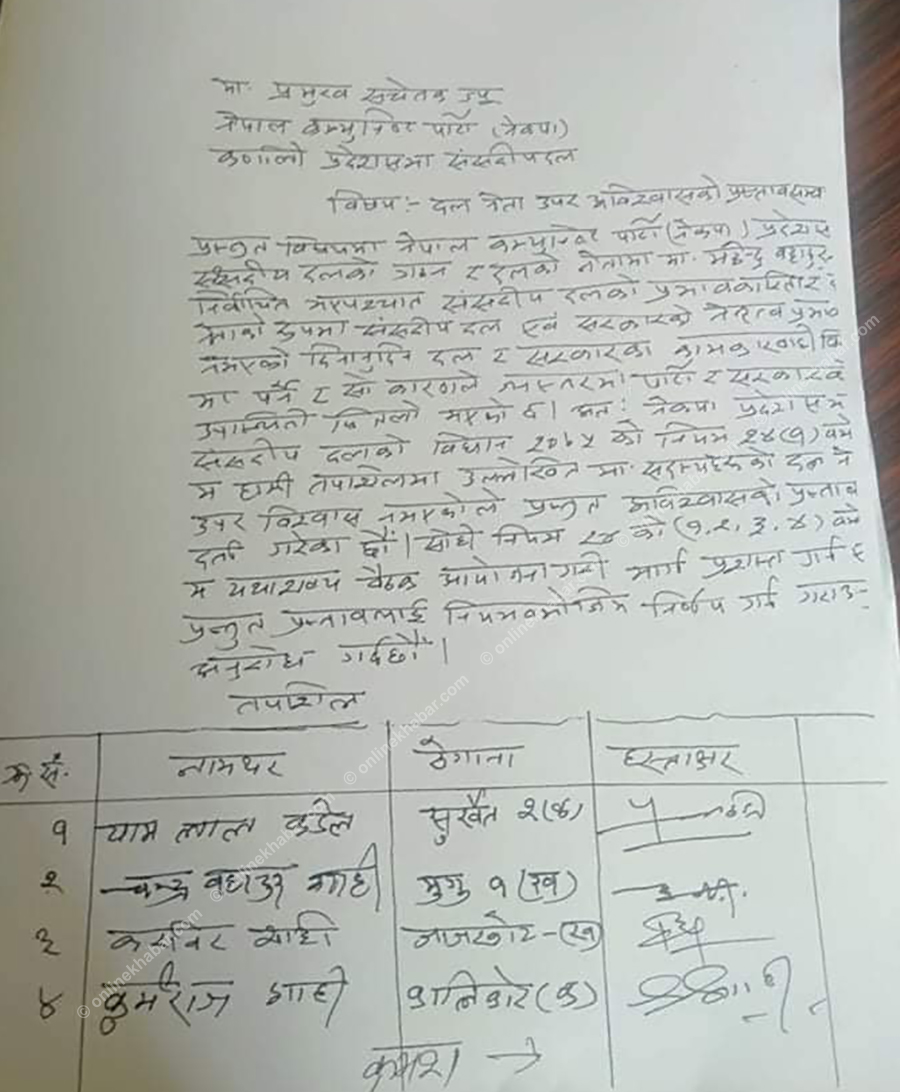 मा. प्रमुख सचेतक ज्यू
नेपाल कम्युनिष्ट पार्टी (नेकपा)
कर्णाली प्रदेशसभा संसदीयदल
विषय:- दल नेता उपर अविश्वासको प्रस्ताव सम्ब
प्रस्तुत विषयमा नेपाल कम्युनिष्ट पार्टी (नेकपा) प्रदेशस
संसदीय दलको गठन र दलको नेतामा मा. महेन्द्र बहादुर
निर्वाचित भएपश्चात संसदीय दलको प्रभावकारिता र
नेताको रुपमा संसदीय दल एवं सरकारको नेतृत्व प्रभाव
नभएको दिनानुदिन दल र सरकारका कामकारवाही वि
मा पर्ने र सो कारणले पार्टी र सरकारको
उपस्थिती फितलो भएको छ। अतः नेकपा प्रदेश सभ
संसदीय दलको विधान २०७५ को नियम २४(१) बमो
म हामी तपशिलमा उल्लेखित मा. सदस्यहरुको दल ने
उपर विश्वास नभएकोले प्रस्तुत अविश्वासको प्रस्ताव
दर्ता गरेका छौं। सोही नियम २४ को (१,२,३,४) बमो
म यथाशक्य बैठक आयोजना गरी मार्ग प्रशस्त गर्न
प्रस्तुत प्रस्तावलाई नियमबमोजिम निर्णय गर्न गराउ-
अनुरोध गर्दछौं।
तपशिल
क्र सं. नामथर ठेगाना हस्ताक्षर
१ याम लाल कंडेल सुर्खेत २(क)
२ चन्द्र बहादुर शाही मुगु १(ख)
३ करविर शाही जाजरकोट-(ख)
४ कुर्मराज शाही कालिकोट (क)
क्रमश →
© onlinekhabar.com © onlinekhabar.com © onlinekhabar.com